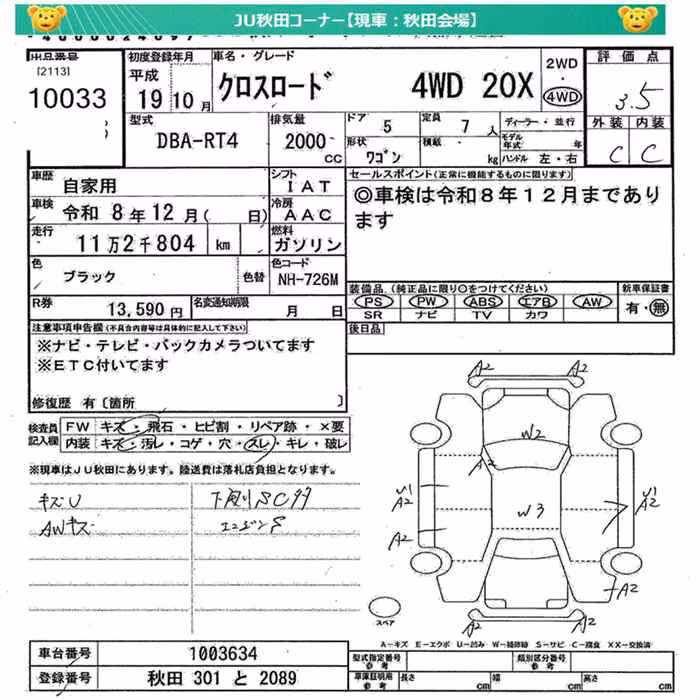 JU秋田コーナー【現車：秋田会場】
出品番号
[2113]
10033
初度登録年月
平成
19年10月
車名・グレード
クロスロード 4WD 20X
2WD
・
4WD
評価点
3.5
外装 内装
C C
型式
DBA-RT4
排気量
2000
CC
ドア
5
定員
7人
ディーラー・並行
形状
ワゴン
積載
kg
モデル年式 年
ハンドル 左・右
車歴
自家用
シフト
IAT
車検
令和 8年12月( 日)
冷房
AAC
走行
11万2千804 km
燃料
ガソリン
色
ブラック
色替
色コード
NH-726M
R券
13,590円
名変通知期限
月 日
セールスポイント(正常に機能するものに限ります)
◎車検は令和8年12月まであります
装備品(純正品に限り○をつけてください)
PS PW ABS エアB AW
SR ナビ TV カワ
新車保証書
有・無
後日品
注意事項申告欄(不具合内容等は具体的に記入して下さい)
※ナビ・テレビ・バックカメラついてます
※ETC付いてます
修復歴 有〔箇所 〕
検査員記入欄
FW キズ・飛石・ヒビ割・リペア跡・×要
内装 キズ・汚レ・コゲ・穴・スレ・キレ・破レ
※現車はJU秋田にあります。陸送費は落札店負担となります。
キズU
AWキズ
下廻りSCサ
エンジンS
A2 A2
W2
A2
U1
A2
W3
U1
A2
A2
A2
A2 A2
スペア
A－キズ E－エクボ U－凹み W－補修跡 S－サビ C－腐食 XX－交換済
車台番号
1003634
登録番号
秋田 301 と 2089
型式指定番号
参考
類別区分番号
参考
車庫証明用
参考
長さ cm
幅 cm
高さ cm